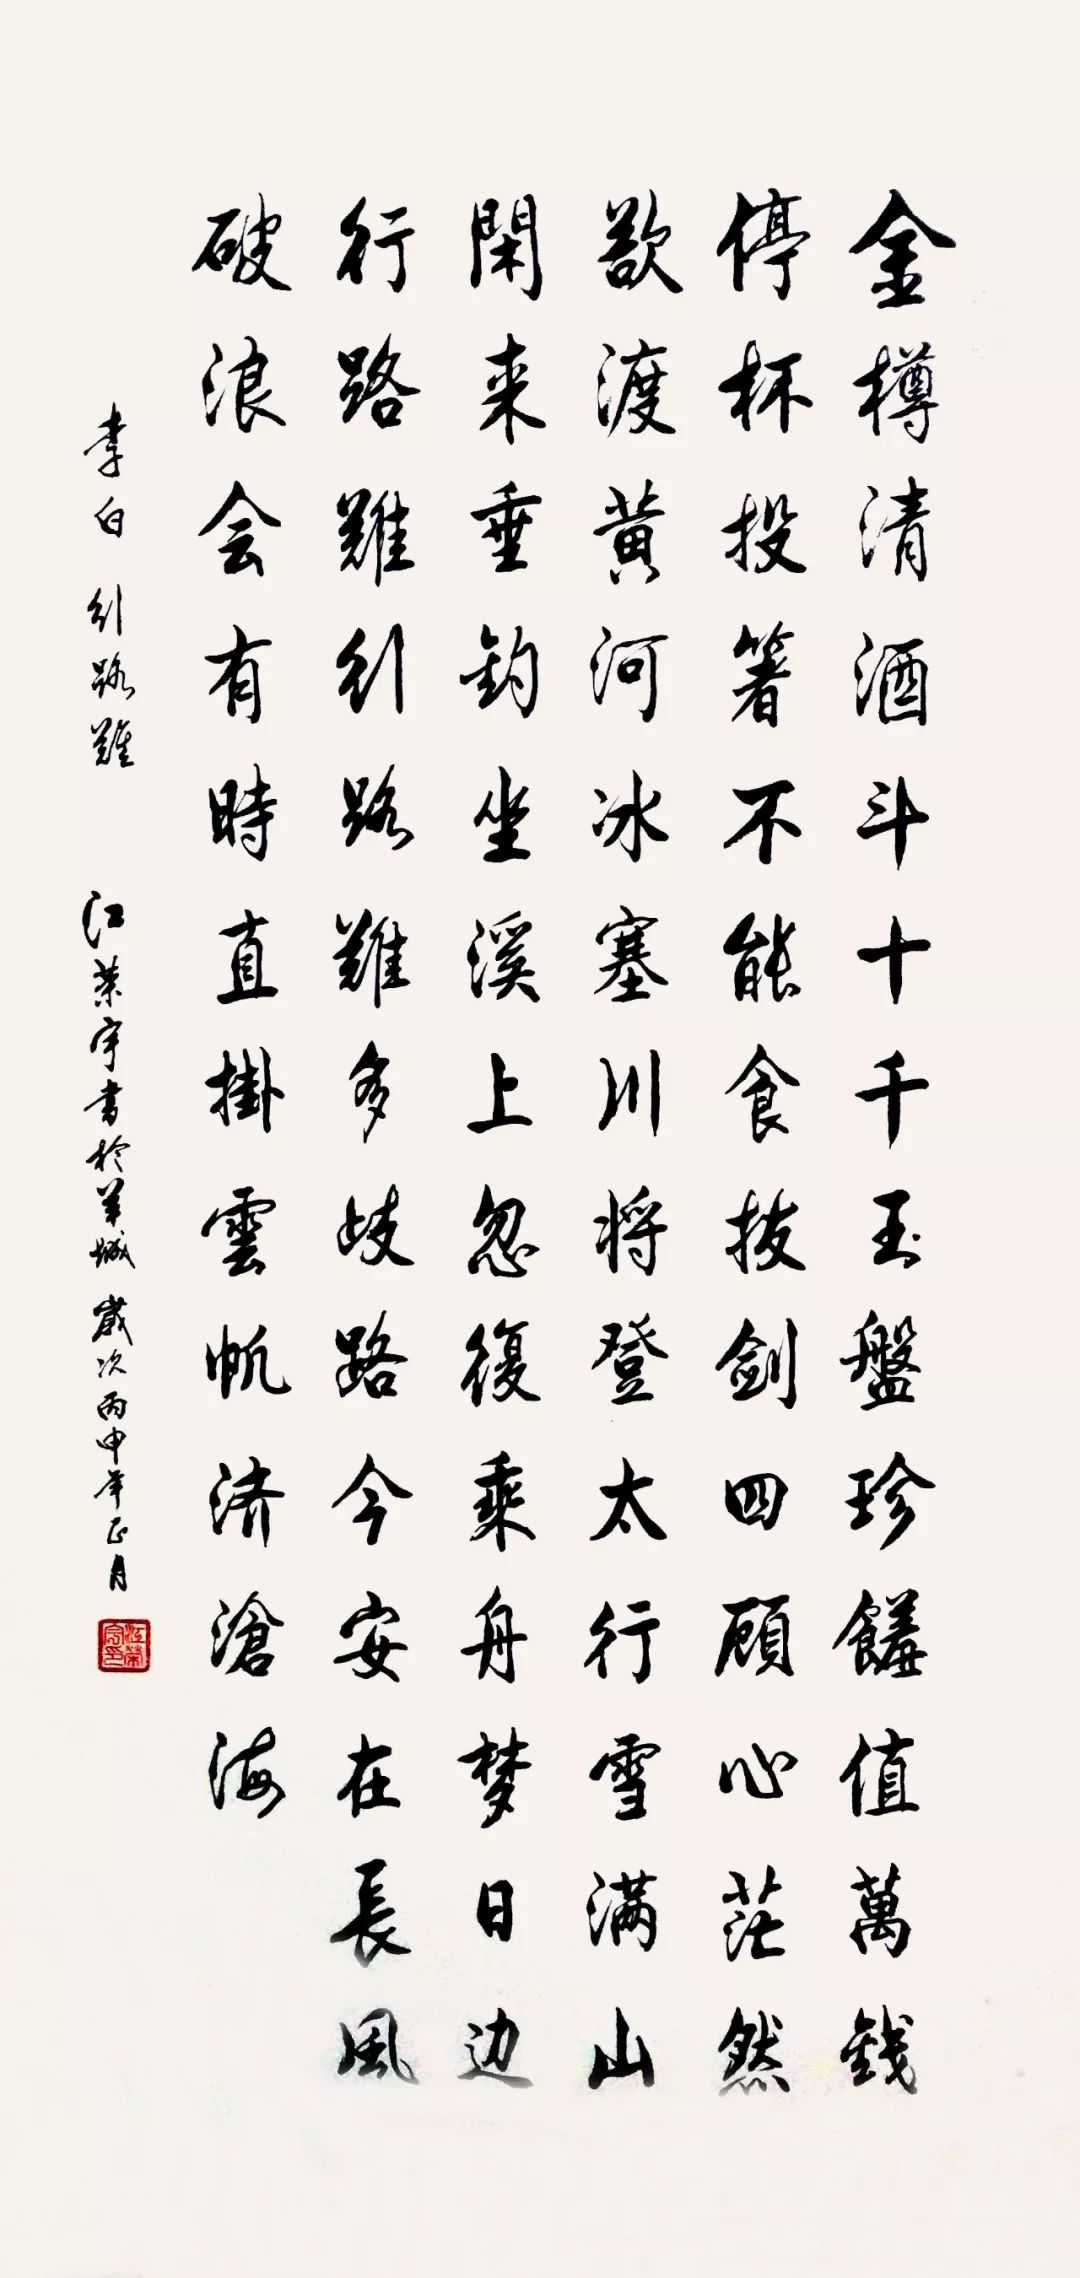 金樽清酒斗十千玉盤珍饈值萬錢
停杯投箸不能食拔劍四顾心茫然
欲渡黄河冰塞川将登太行雪满山
閑来垂钓坐溪上忽復乘舟梦日边
行路難行路難多歧路今安在長風
破浪会有時直掛雲帆济滄海
李白 行路難 江荣宇書於羊城 歲次丙申年正月